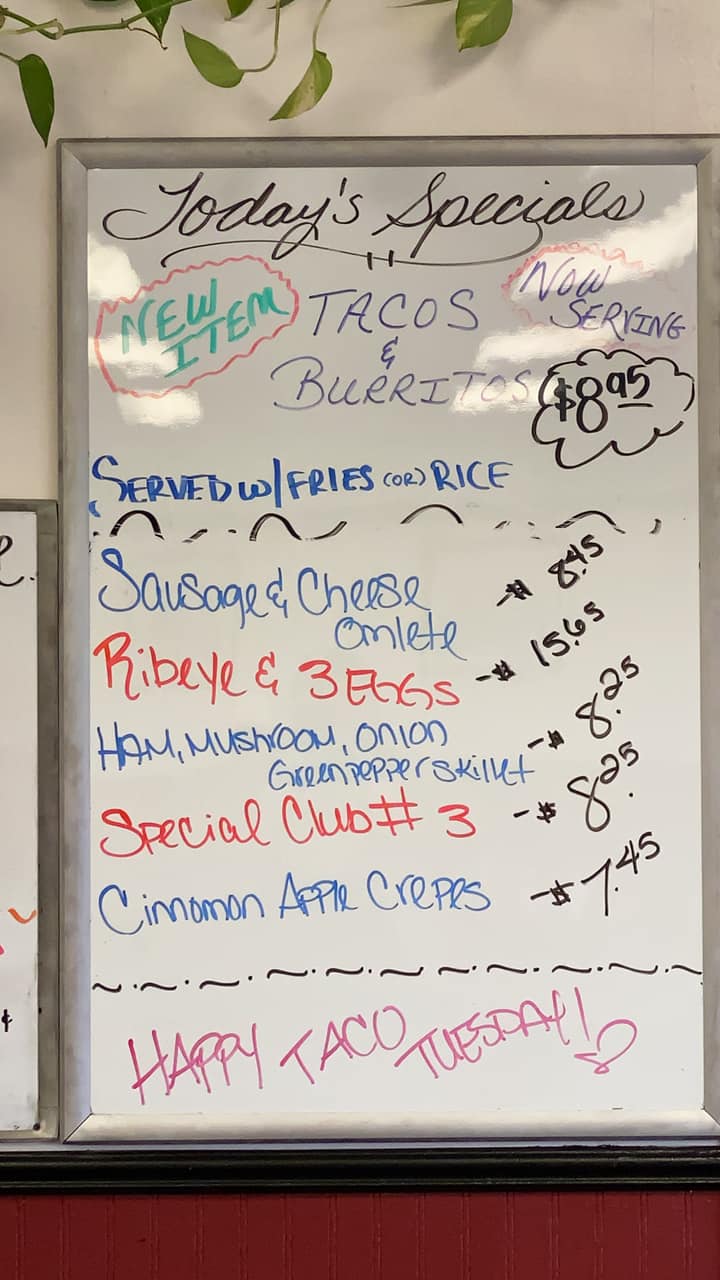 Today's Specials
NEW
ITEM
TACOS
&
BURRITOS
NOW
SERVING
$8.95
SERVED W/ FRIES (OR) RICE
Sausage & Cheese
Omlete
-$ 8.45
Ribeye & 3 EGGS -$ 15.65
HAM, MUSHROOM, ONION
Greenpepper Skillet
-$ 8.25
Special Club # 3 -$ 8.25
Cinnomon Apple Crepes -$ 7.45
HAPPY TACO TUESDAY!